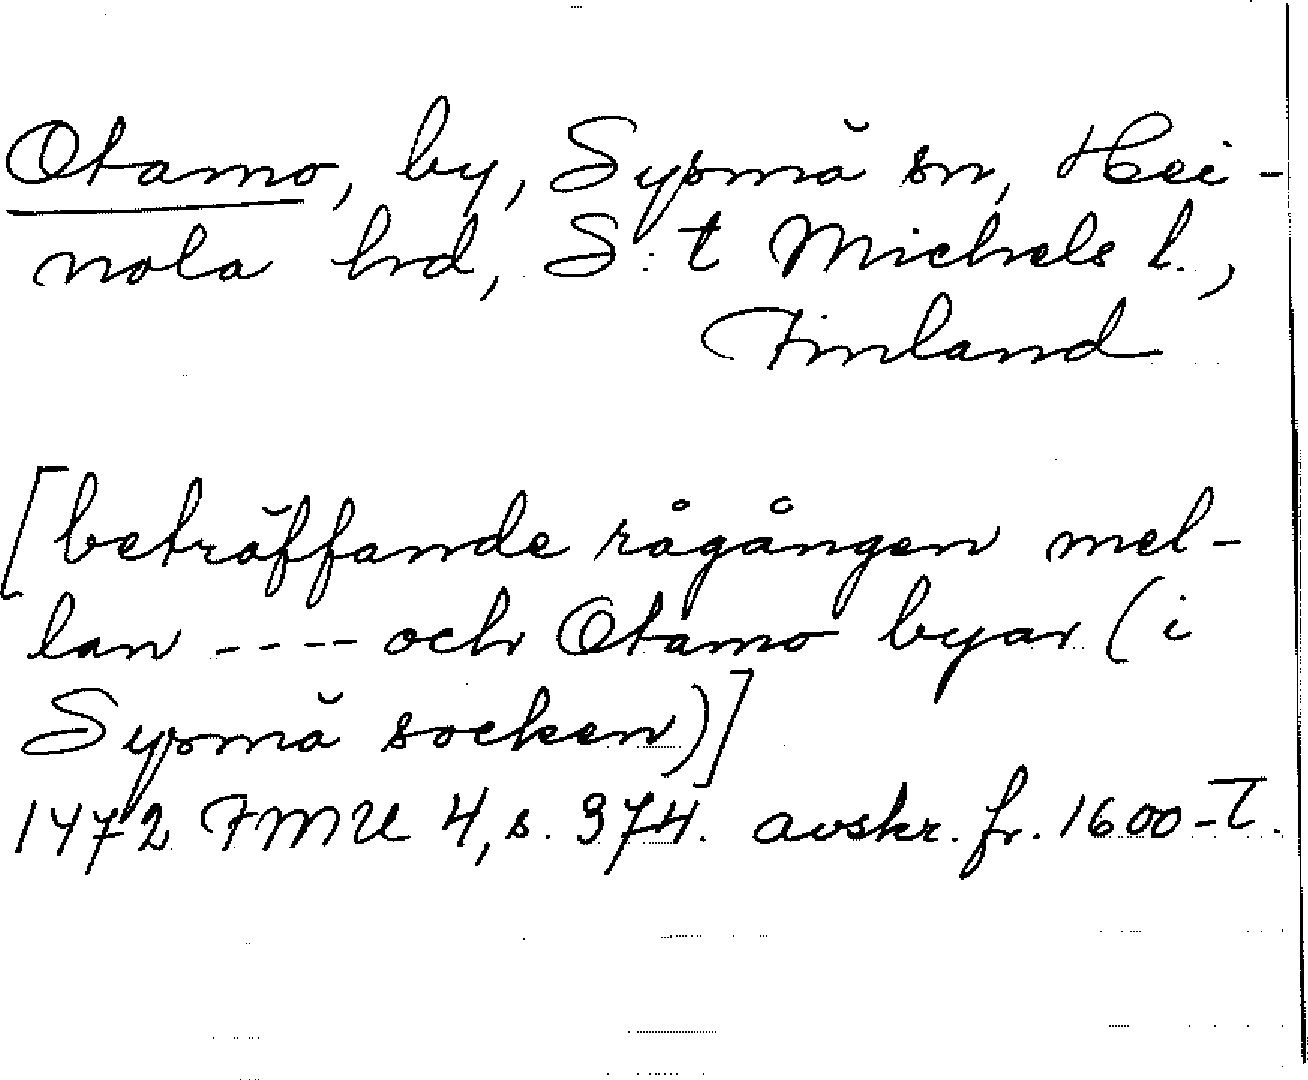 Otamo, by, Sysmä sn, Hei-
nola hrd, S:t Michels l.,
Finland
[beträffande rågången mel-
lan ---- och Otamo byar (i
Sysmä socken)]
1472 FMU 4, s. 374. avskr. fr. 1600-t.